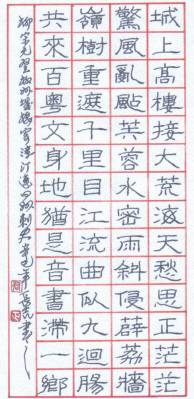 城上高樓接大荒海天愁思正茫茫
驚風亂颭芙蓉水密雨斜侵薜荔牆
嶺樹重遮千里目江流曲似九迴腸
共來百粵文身地猶是音書滯一鄉
柳宗元登柳州城樓寄漳汀封連四州刺史